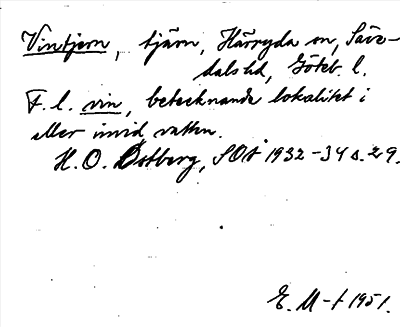 Vintjern, tjärn, Härryda sn, Säve-
dals hd, Göteb. l.
F. l. vin, betecknande lokalitet i
eller invid vatten.
H. O. Östberg, SOÅ 1932-34 s. 29.
E. M-t 1951.